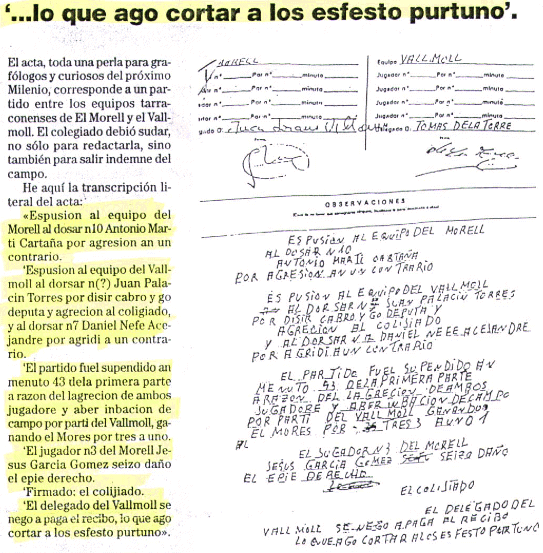 ‘...lo que ago cortar a los esfesto purtuno’.
El acta, toda una perla para gra-
fólogos y curiosos del próximo
Milenio, corresponde a un par-
tido entre los equipos tarra-
conenses de El Morell y el Vall-
moll. El colegiado debió sudar,
no sólo para redactarla, sino
también para salir indemne del
campo.
He aquí la transcripción lite-
ral del acta:
«Espusion al equipo del
Morell al dosar n10 Antonio Mar-
ti Cartaña por agresion an un
contrario.
‘Espusion al equipo del Vall-
moll al dorsar n(?) Juan Pala-
cin Torres por disir cabro y go
deputa y agrecion al coligiado,
y al dorsar n7 Daniel Nefe Ace-
jandre por agridi a un contra-
rio.
‘El partido fuel supendido an
menuto 43 dela primera parte
a razon del lagrecion de ambos
jugadore y aber inbacion de
campo por parti del Vallmoll, ga-
nando el Mores por tres a uno.
‘El jugador n3 del Morell Je-
sus Garcia Gomez seizo daño
el epie derecho.
‘Firmado: el colijiado.
‘El delegado del Vallmoll se
nego a paga el recibo, lo que ago
cortar a los esfesto purtuno».
MORELL
Nº Por nº minuto
Nº Por nº minuto
Nº Por nº minuto
Equipo VALLMOLL
Jugador nº Por nº minuto
Jugador nº Por nº minuto
Jugador nº Por nº minuto
Delegado D. TOMAS DELATORRE
OBSERVACIONES
ESPUSION AL EQUIPO DEL MORELL
AL DOSAR N10
ANTONIO MARTI CARTAÑA
POR AGRESION AN UN CONTRARIO
ESPUSION AL EQUIPO DEL VALLMOLL
AL DORSAR N JUAN PALACIN TORRES
POR DISIR CABRO Y GO DEPUTA Y
AGRECION AL COLISIADO
Y AL DORSAR N DANIEL NEFE ACEJANDRE
POR AGRIDI AUN CONTRARIO
EL PARTIDO FUEL SUPENDIDO AN
MENUTO 43 DELA PRIMERA PARTE
ARAZON DEL LAGRECION DE AMBOS
JUGADORE Y ABER INBACION DECAMPO
POR PARTI DEL VALLMOLL GANANDO
EL MORES POR TRES AUNO 1
AL
EL JUGADOR N3 DEL MORELL
JESUS GARCIA GOMEZ SEIZO DAÑO
EL EPIE DERECHO
EL COLISIADO
EL DELEGADO DEL
VALLMOLL SE NEGO APAGA AL RECIBO
LO QUE AGO CORTAR ALOS ESFESTO PURTUNO